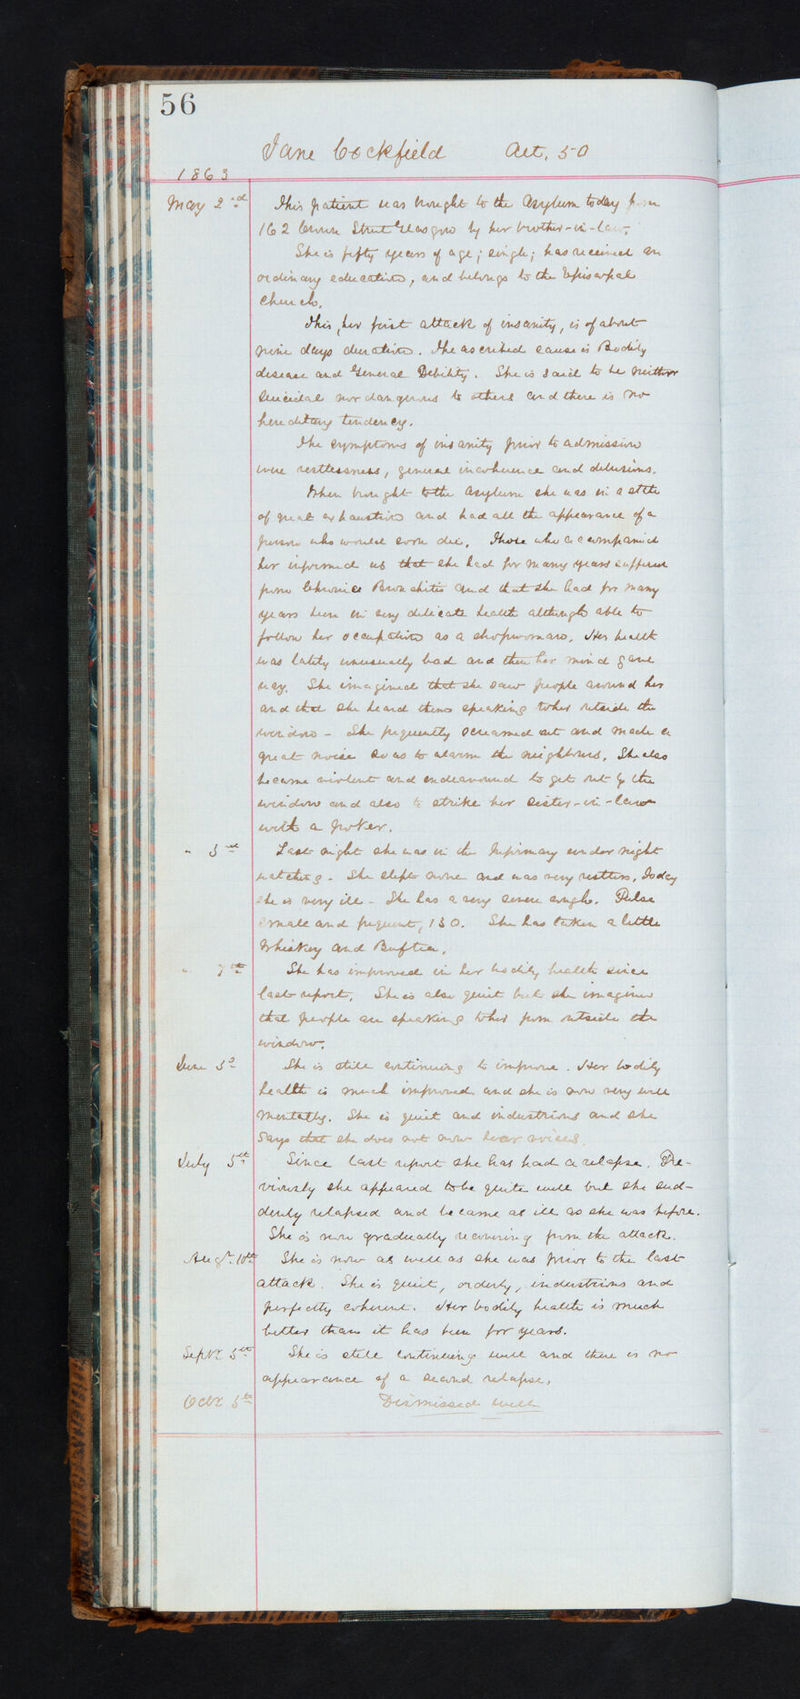 56
Jane Cockfield Aet. 50
1863
May 2nd This patient was brought to the Asylum today from
162 Crown Street Glasgow by her brother-in-law.
She is fifty years of age; single; has received an
ordinary education, and belongs to the Episcopal
Church.
This, her first attack of insanity, is of about
nine days duration. The ascribed cause is Bodily
disease and General Debility. She is said to be neither
suicidal nor dangerous to others and there is no
hereditary tendency.
The symptoms of insanity prior to admission
were restlessness, general incoherence and delusions.
When brought to the Asylum she was in a state
of great exhaustion and had all the appearance of a
person who would soon die. Those who accompanied
her informed us that she had for many years suffered
from Chronic Bronchitis and that she had for many
years been in very delicate health although able to
follow her occupation as a shopwoman. Her health
was lately unusually bad and then her mind gave
way. She imagined that she saw people around her
and that she heard them speaking to her outside the
window - She frequently screamed out and made a
great noise so as to alarm the neighbours. She also
became violent and endeavoured to get out by the
window and also to strike her sister-in-law
with a poker.
" 3rd Last night she was in the Infirmary under night
watching. She slept none and was very restless. Today
she is very ill - She has a very severe cough. Pulse
small and frequent, 130. She has taken a little
Whiskey and Beeftea.
" 7th She has improved in her bodily health since
last report. She is also quiet but she imagines
that people are speaking to her from outside the
window.
June 3d She is still continuing to improve. Her bodily
health is much improved and she is now very well
mentally. She is quiet and industrious and she
says that she does not now hear voices.
July 5th Since last report she has had a relapse. Pre-
viously she appeared to be quite well but she sud-
denly relapsed and became as ill as she was before.
She is now gradually recovering from the attack.
Augst. 10th She is now as well as she was prior to the last
attack. She is quiet, orderly, industrious and
perfectly coherent. Her bodily health is much
better than it has been for years.
Septr. 5th She is still continuing well and there is no
appearance of a second relapse.
Octr 5th Dismissed well